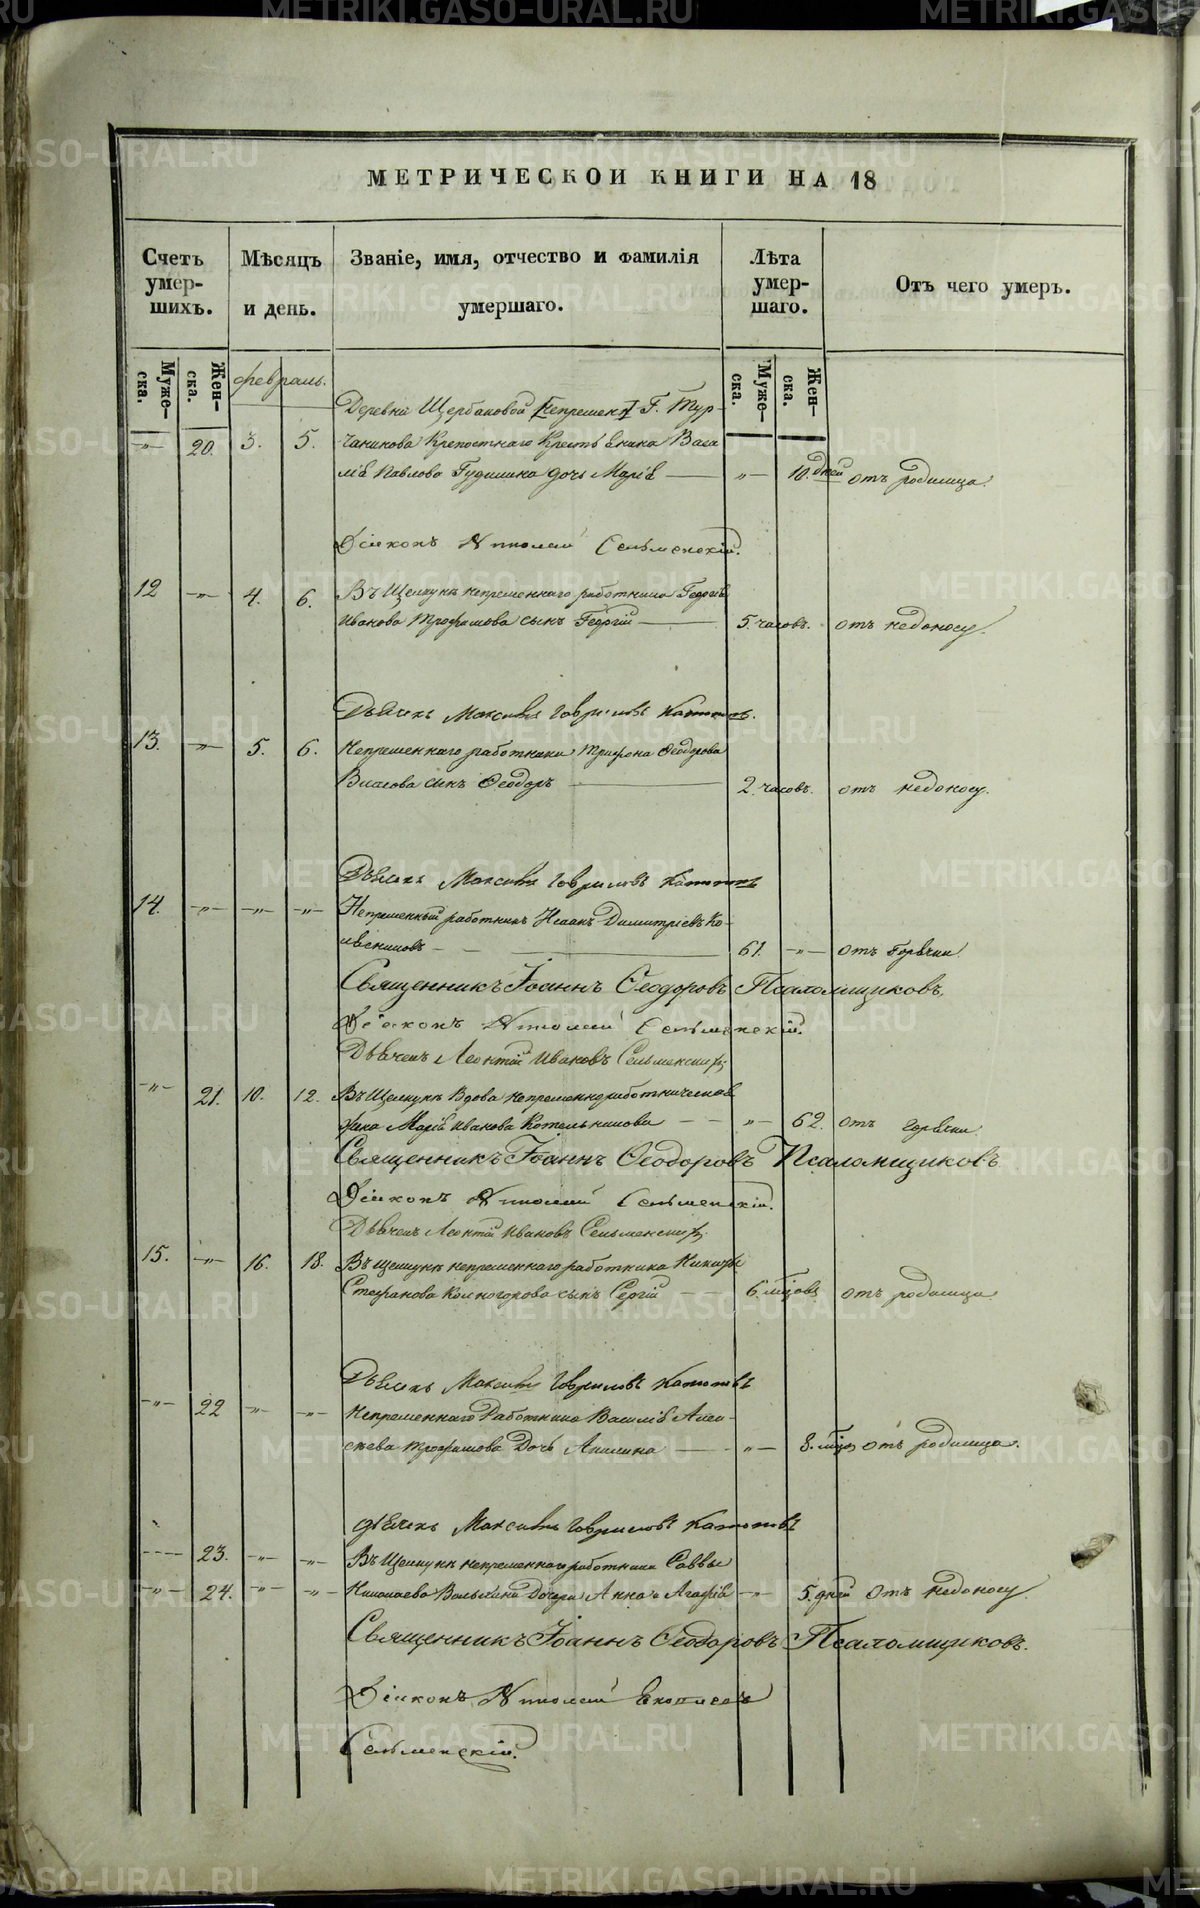 МЕТРИЧЕСКОИ КНИГИ НА 18
Счетъ умер-шихъ.
Мѣсяцъ и день.
Званіе, имя, отчество и фамилія умершаго.
Лѣта умер-шаго.
Отъ чего умеръ.
Муже-ска.
Жен-ска.
Муже-ска.
Жен-ска.
февраль.
Деревни Щербаковой Г. Тур-
20. 3. 5. чанинова Крепостнаго Васи
лія Павлова дочь Марія 10. дней отъ родимца.
Діаконъ Николай Сельменскій.
12 4. 6. Въ непременнаго работника Георгія
Иванова Трофимова сынъ Георгій 5. часовъ. отъ недоносу.
Дьячекъ Максимъ Гавриловъ
13. 5. 6. Непременнаго работника Трифона Феодорова
Власова сынъ Феодоръ 2. часовъ. отъ недоносу.
Дьячекъ Максимъ Гавриловъ
14. Непременный работникъ Димитріевъ Ко-
61. отъ горячки.
Священникъ Іоаннъ Феодоровъ Псаломщиковъ.
Діаконъ Николай Сельменскій.
Дьячекъ Леонтій Ивановъ Сельменскій
21. 10. 12. Вдова
Марія Иванова Котельникова 62. отъ горячки.
Священникъ Іоаннъ Феодоровъ Псаломщиковъ
Діаконъ Николай Сельменскій.
Дьячекъ Леонтій Ивановъ Сельменскій
15. 16. 18. непременнаго работника Никиты
Стефанова Колногорова сынъ Сергій 6. отъ родимца.
Дьячекъ Максимъ Гавриловъ
22 Непременнаго Работника Василія Алек-
сѣева Трофимова Дочь Акилина 8. отъ родимца.
дьячекъ Максимъ Гавриловъ
23. непременнаго работника Саввы
24. Николаева Дочери Анна и Агафія 5. дней Отъ недоносу.
Священникъ Іоаннъ Феодоровъ Псаломщиковъ.
Діаконъ Николай
Сельменскій.
METRIKI.GASO-URAL.RU